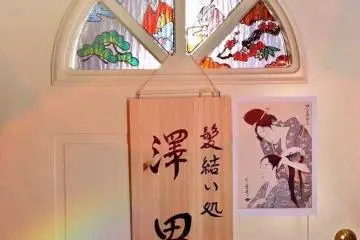 髪結い処
澤田